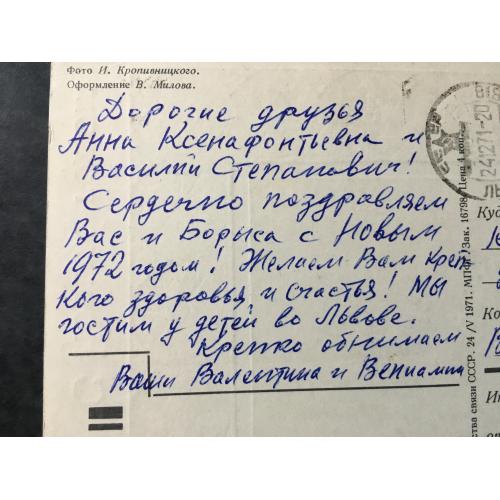 Фото И. Кропивницкого.
Оформление В. Милова.
Дорогие друзья
Анна Ксенафонтьевна и
Василий Степанович!
Сердечно поздравляем
Вас и Бориса с Новым
1972 годом! Желаем Вам креп-
кого здоровья и счастья! Мы
гостим у детей во Львове.
Крепко обнимаем
Ваши Валентина и Вениамин
24 12 71 - 20
Куд
Ко
Ин
ства связи СССР. 24/V 1971. МПФГ. Зак. 16798. Цена 4 коп.